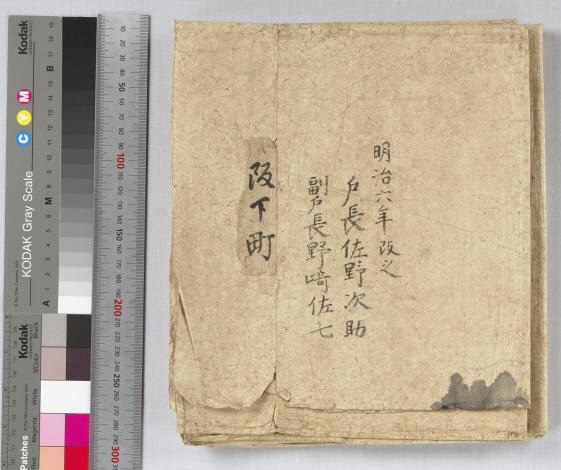 明治六年改之
戸長佐野次助
副戸長野崎佐七
阪下町
Kodak
C Y M
KODAK Gray Scale
A 1 2 3 4 5 6 M 8 9 10 11 12 13 14 15 B 17 18 19
10 20 30 40 50 60 70 80 90 100 110 120 130 140 150 160 170 180 190 200 210 220 230 240 250 260 270 280 290 300
Kodak
Patches
Black
3/Color
White
Magenta
Red